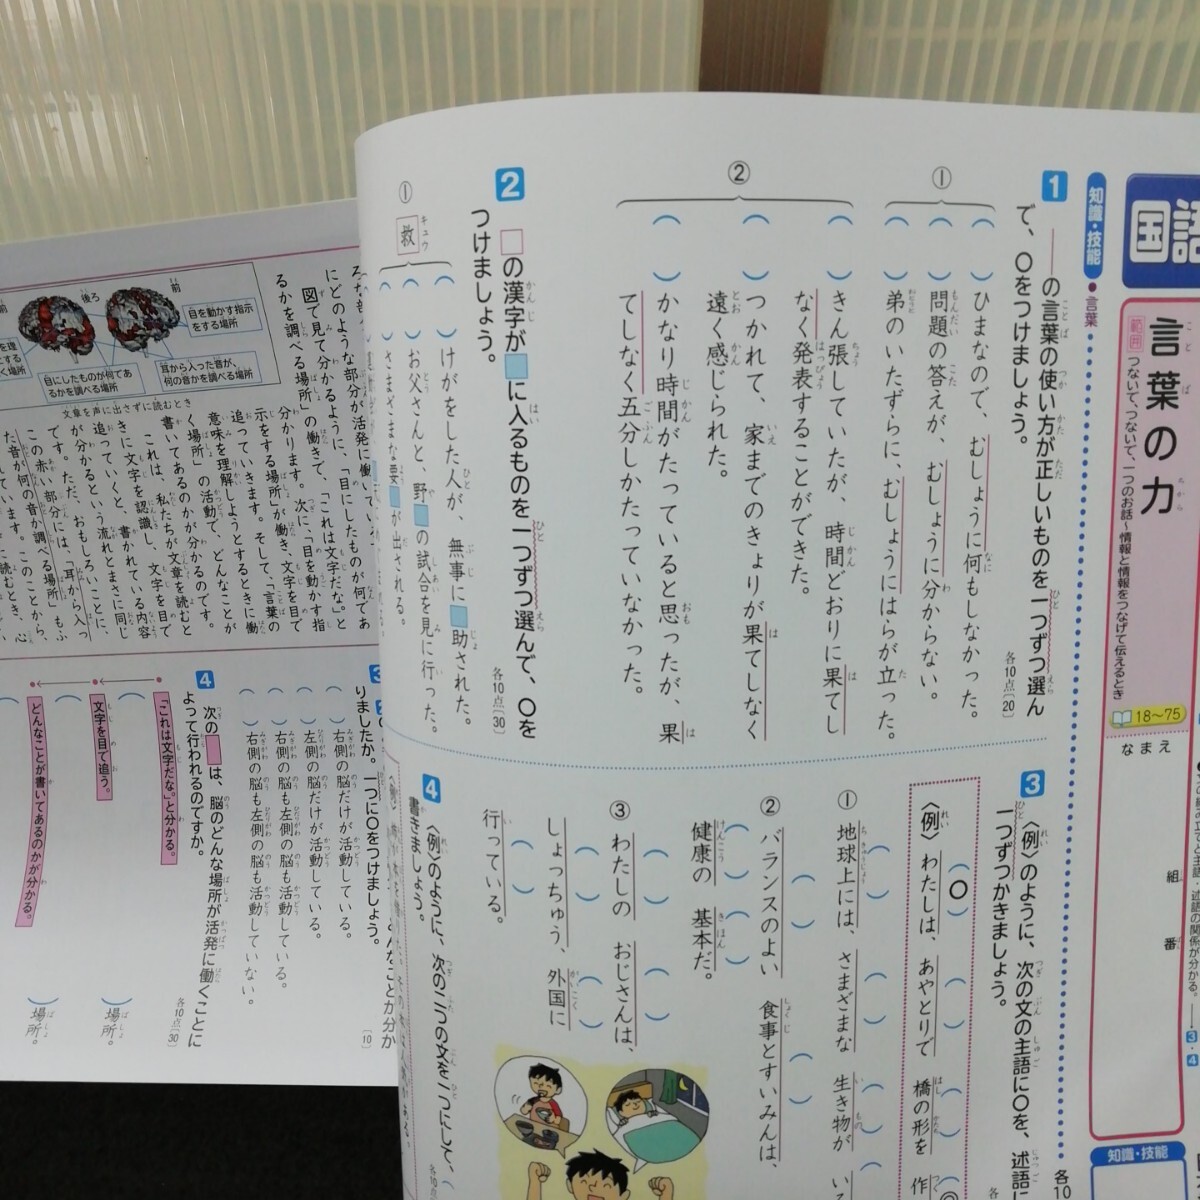 国語
言葉の力
範囲 つないで、つないで、一つのお話~情報と情報をつなげて伝えるとき
18~75
なまえ
組
番
知識・技能
知識・技能 ●言葉
1 ――の言葉の使い方が正しいものを一つずつ選んで、○をつけましょう。
各10点[20]
①
( )ひまなので、むしょうに何もしなかった。
( )問題の答えが、むしょうに分からない。
( )弟のいたずらに、むしょうにはらが立った。
②
( )きん張していたが、時間どおりに果てしなく発表することができた。
( )つかれて、家までのきょりが果てしなく遠く感じられた。
( )かなり時間がたっていると思ったが、果てしなく五分しかたっていなかった。
2 □の漢字が■に入るものを一つずつ選んで、○をつけましょう。
各10点[30]
① 救 キュウ
( )けがをした人が、無事に■助された。
( )お父さんと、野■の試合を見に行った。
( )さまざまな要■が出される。
3 〈例〉のように、次の文の主語に○を、述語
一つずつかきましょう。
各10
〈例〉 わたしは、 あやとりで 橋の形を 作
① 地球上には、 さまざまな 生き物が い
② バランスのよい 食事とすいみんは、
健康の 基本だ。
③ わたしの おじさんは、
しょっちゅう、 外国に
行っている。
4 〈例〉のように、次の二つの文を一つにして、
書きましょう。
各10点
前
後ろ
前
目を動かす指示をする場所
耳から入った音が、何の音かを調べる場所
目にしたものが何であるかを調べる場所
文章を声に出さずに読むとき
にどのような部分が活発に働いている
図で見て分かるように、「目にしたものが何であ
るかを調べる場所」の働きで、「これは文字だな」と
分かります。次に、「目を動かす指
示をする場所」が働き、文字を目で
追っていきます。そして、「言葉の
意味を理解しようとするときに働
く場所」の活動で、どんなことが
書いてあるのかが分かるのです。
これは、私たちが文章を読むと
きに文字を認識し、文字を目で
追っていくと、書かれている内容
が分かるという流れとまさに同じ
です。ただ、おもしろいことに、
この赤い部分には、「耳から入っ
た音が何の音か調べる場所」もふ
りましたか。一つに○をつけましょう。
[10]
( )右側の脳だけが活動している。
( )左側の脳だけが活動している。
( )右側の脳も左側の脳も活動している。
( )右側の脳も左側の脳も活動していない。
4 次の■は、脳のどんな場所が活発に働くことに
よって行われるのですか。
各10点[30]
「これは文字だな。」と分かる。
( )場所。
文字を目で追う。
( )場所。
どんなことが書いてあるのかが分かる。
( )場所。